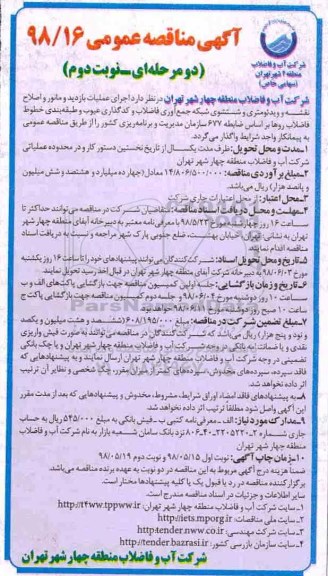 آگهی مناقصه عمومی ۹۸/۱۶
(دو مرحله‌ای - نوبت دوم)
شرکت آب و فاضلاب
منطقه ۴ شهر تهران
(سهامی خاص)
شرکت آب و فاضلاب منطقه چهار شهر تهران در نظر دارد اجرای عملیات بازدید و مانور و اصلاح
نقشه و ویدئومتری و شستشوی شبکه جمع‌آوری فاضلاب و کدگذاری عیوب و طبقه‌بندی خطوط
فاضلاب‌روها بر اساس ضابطه ۶۷۷ سازمان مدیریت و برنامه‌ریزی کشور را از طریق مناقصه عمومی
به پیمانکار واجد شرایط واگذار می‌گردد.
۱-مدت و محل تحویل: ظرف مدت یکسال از تاریخ نخستین دستور کار و در محدوده عملیاتی
شرکت آب و فاضلاب منطقه چهار شهر تهران
۲-مبلغ برآوردی مناقصه: ۱۴/۰۸۶/۵۰۰/۰۰۰ معادل (چهارده میلیارد و هشتصد و شش میلیون
و پانصد هزار) ریال می‌باشد.
۳-محل اعتبار: از محل اعتبارات جاری شرکت
۴-مهلت و محل دریافت اسناد مناقصه: متقاضیان شرکت در مناقصه می‌توانند حداکثر تا
ساعت ۱۶ روز چهارشنبه مورخ ۹۸/۵/۲۳ با معرفی‌نامه معتبر به دبیرخانه آبفای منطقه چهار شهر
تهران به نشانی تهران، خیابان بهشت، ضلع جنوبی پارک شهر مراجعه و نسبت به دریافت اسناد
مناقصه اقدام نمایند.
۵-تاریخ و محل تحویل اسناد: شرکت‌کنندگان می‌توانند پیشنهادهای خود را تا ساعت ۱۶ روز یکشنبه
مورخ ۹۸/۰۶/۰۳ به دبیرخانه شرکت آبفای منطقه چهار شهر تهران در قبال اخذ رسید تحویل نمایند.
۶-تاریخ و زمان بازگشایی: جلسه اولین کمیسیون مناقصه جهت بازگشایی پاکت‌های الف و ب
ساعت ۱۰ روز دوشنبه مورخ ۹۸/۰۶/۰۴ و جلسه دوم کمیسیون مناقصه جهت بازگشایی پاکت ج
ساعت ۱۰ صبح روز دوشنبه مورخ خواهد بود.
۷-مبلغ تضمین شرکت در مناقصه: مبلغ ۶۰۸/۱۹۵/۰۰۰ (ششصد و هشت میلیون و یکصد
و نود و پنج هزار) ریال می‌باشد که شرکت‌کنندگان در مناقصه می‌توانند به صورت فیش واریزی
نقدی و یا ضمانتنامه بانکی در وجه شرکت آب و فاضلاب منطقه چهار شهر تهران و یا چک بانکی
تضمینی در وجه شرکت آب و فاضلاب منطقه چهار شهر تهران ارسال نمایند و به پیشنهادهایی که
فاقد سپرده، سپرده‌های مخدوش، سپرده‌های کمتر از میزان مقرر، چک شخصی و نظایر آن ترتیب
اثر داده نخواهد شد.
۸-به پیشنهادهای فاقد امضاء اوراق شرایط، مشروط، مخدوش و پیشنهادهایی که بعد از مدت مقرر
این آگهی واصل شود مطلقاً ترتیب اثر داده نخواهد شد.
۹-مدارک مورد نیاز: الف-معرفی‌نامه کتبی ب-فیش بانکی به مبلغ ۵۴۵/۰۰۰ ریال به حساب
جاری شماره نزد بانک سامان شعبه بازار به نام شرکت آب و فاضلاب
منطقه چهار شهر تهران
۱۰-زمان چاپ آگهی: نوبت اول ۹۸/۰۵/۱۵ و نوبت دوم ۹۸/۰۵/۱۹
ضمناً هزینه درج آگهی مربوط به این مناقصه در دو نوبت به عهده برنده مناقصه می‌باشد.
برگزارکننده مناقصه در رد یا قبول یک یا کلیه پیشنهادها مختار است.
سایر اطلاعات و جزئیات در اسناد مناقصه مندرج است.
۱-سایت شرکت آب و فاضلاب منطقه چهار شهر تهران: http://t4ww.tppww.ir
۲-سایت ملی مناقصات: http://iets.mporg.ir
۳-سایت شرکت مهندسی: http://tender.nww.co.ir
۴-سایت سازمان بازرسی کشور: http://tender.bazrasi.ir
شرکت آب و فاضلاب منطقه چهار شهر تهران